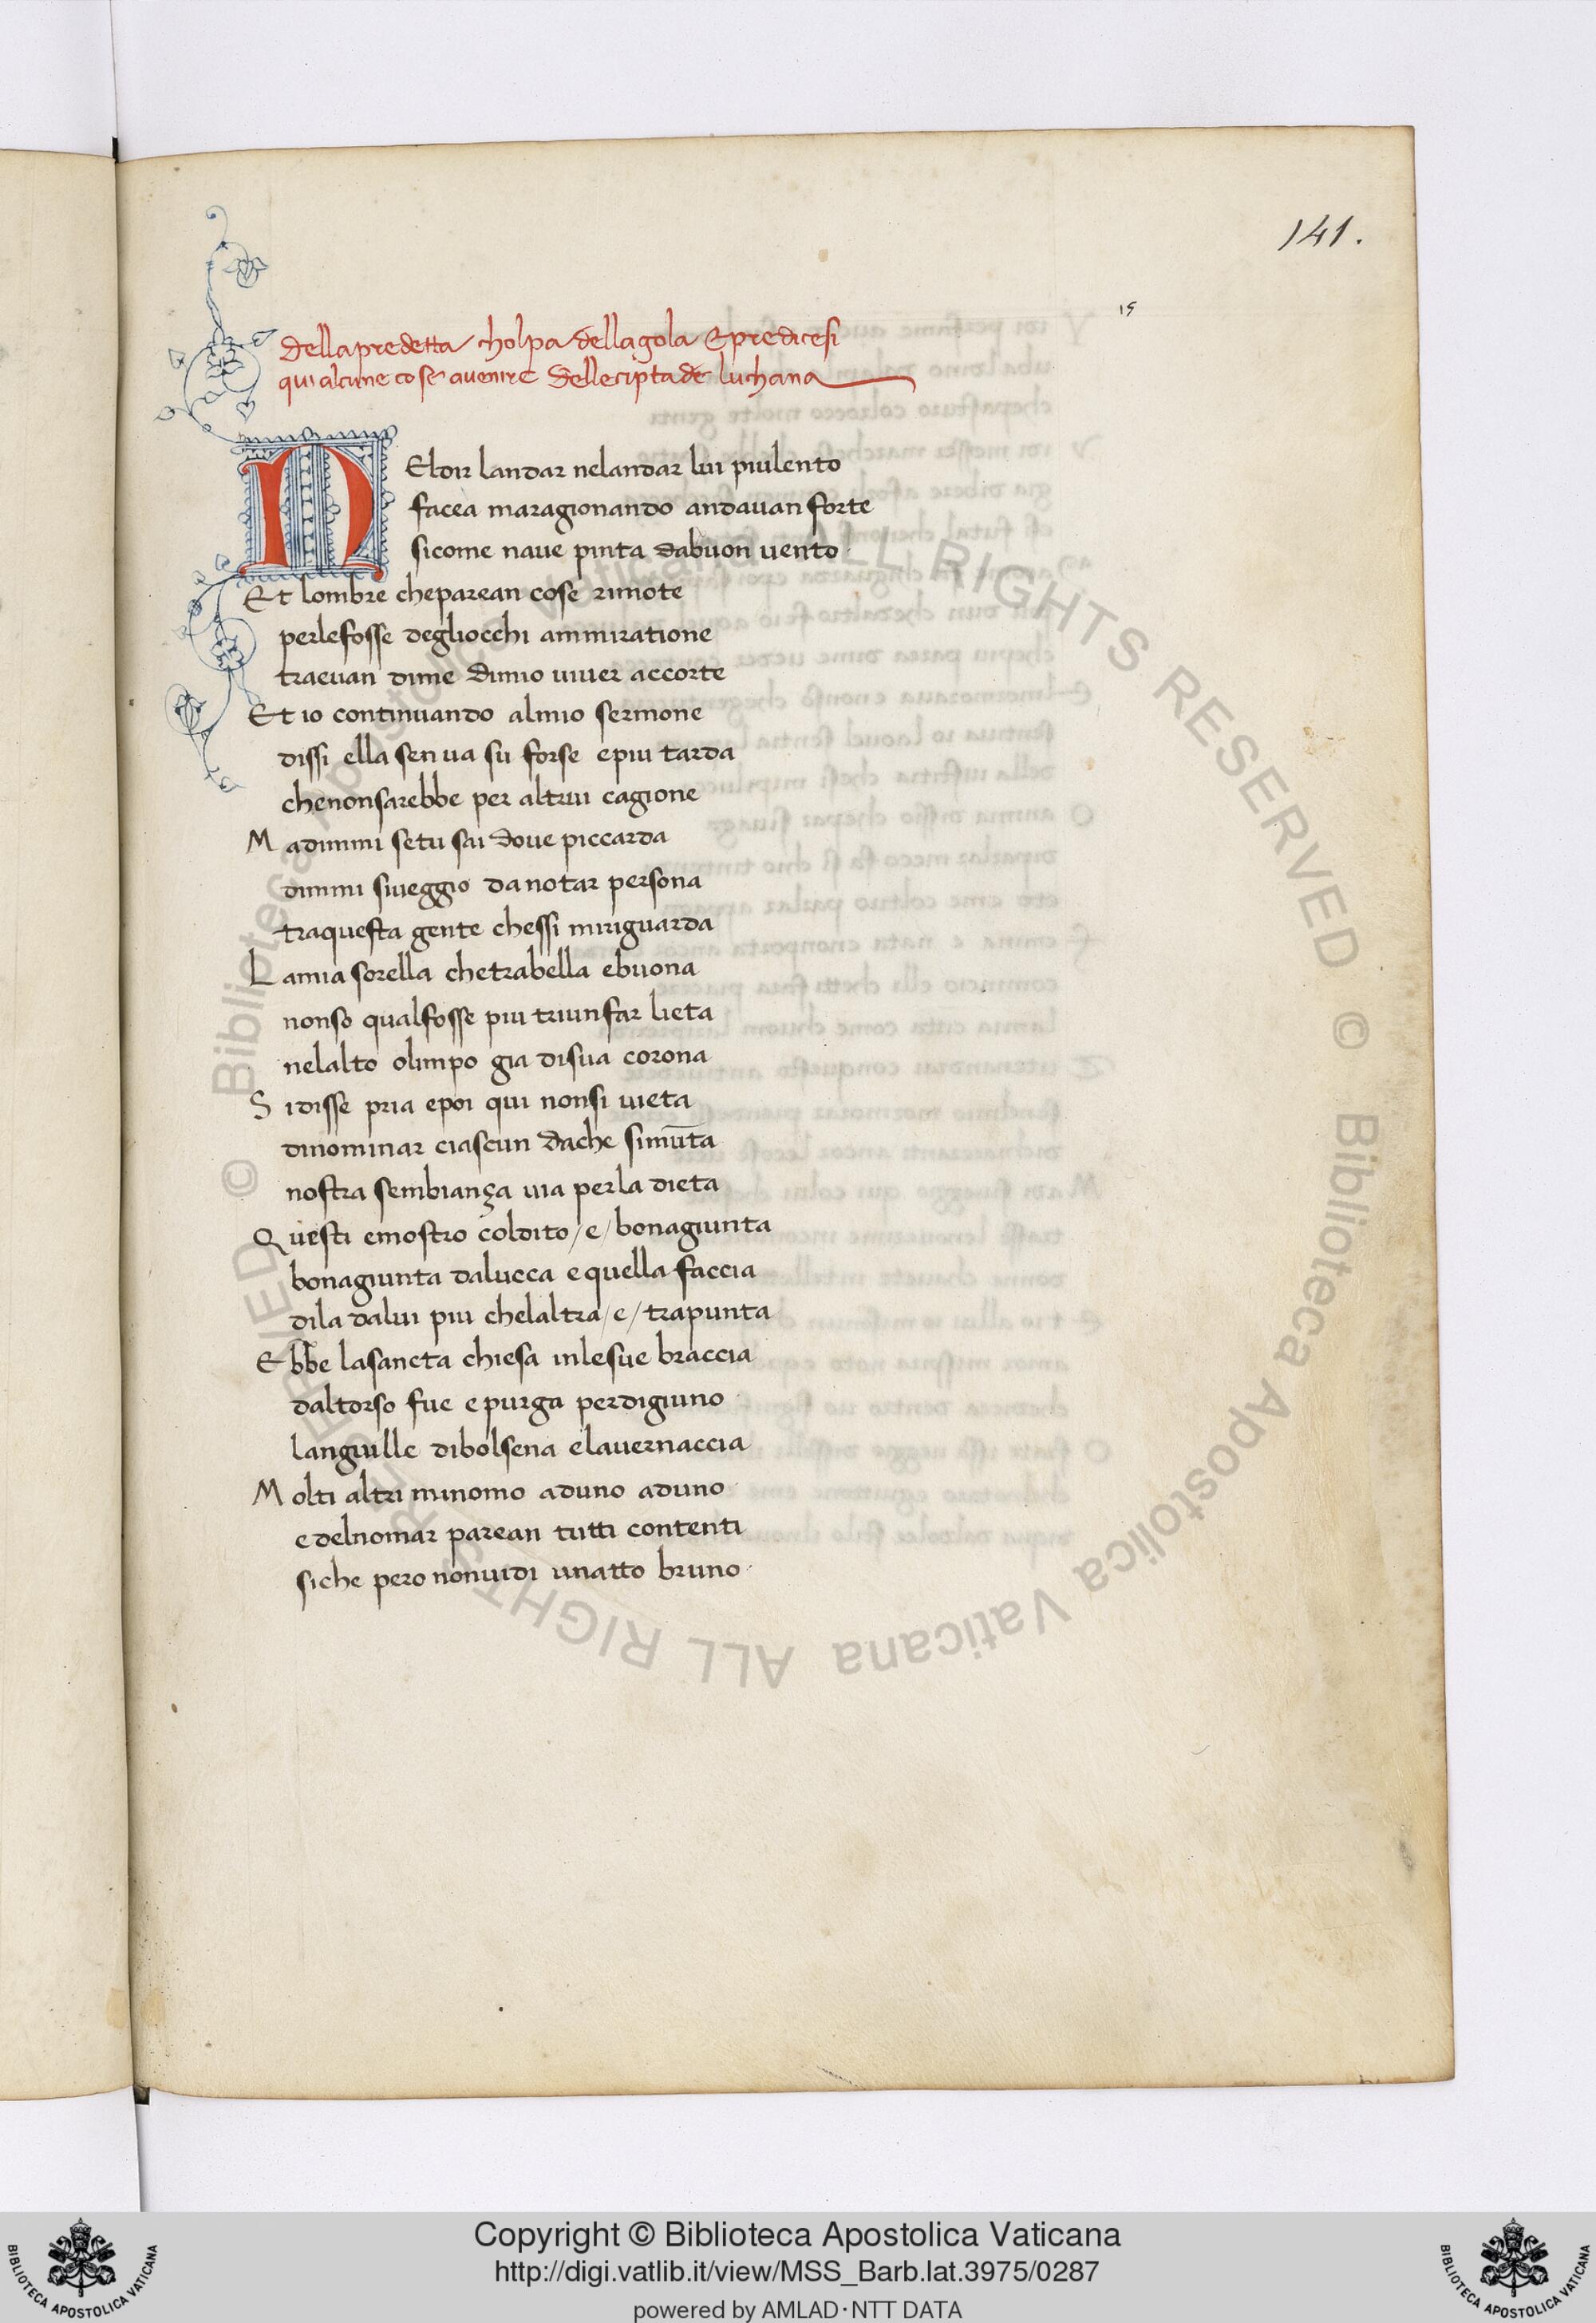 141.
15
dellapredetta cholpa dellagola Epredicesi
qui alcune cose avenire dellecipta de luchana
NEldir landar nelandar lui piulento
facea maragionando andauan forte
sicome naue pinta dabuon uento
Et lombre cheparean cose rimote
perlefosse degliocchi ammiratione
traeuan dime dimio uiuer accorte
Et io continuando almio sermone
dissi ella sen ua su forse epiu tarda
chenonsarebbe per altrui cagione
Madimmi setu sai doue piccarda
dimmi siueggio danotar persona
traquesta gente chessi miriguarda
Lamia sorella chetrabella ebuona
nonso qualfosse piu triunfar lieta
nelalto olimpo gia disua corona
Sidisse pria epoi qui nonsi uieta
dinominar ciascun dache simūta
nostra sembiança uia perla dieta
Questi emostro coldito/e/bonagiunta
bonagiunta dalucca equella faccia
dila dalui piu chelaltra/e/trapunta
Ebbe lasancta chiesa inlesue braccia
daltorso fue epurga perdigiuno
languille dibolsena elauernaccia
Molti altri minomo aduno aduno
edelnomar parean tutti contenti
siche pero nonuidi unatto bruno
© Biblioteca Apostolica Vaticana ALL RIGHTS RESERVED © Biblioteca Apostolica Vaticana ALL RIGHTS RESERVED
Copyright © Biblioteca Apostolica Vaticana
http://digi.vatlib.it/view/MSS_Barb.lat.3975/0287
powered by AMLAD·NTT DATA
BIBLIOTECA APOSTOLICA VATICANA
BIBLIOTECA APOSTOLICA VATICANA